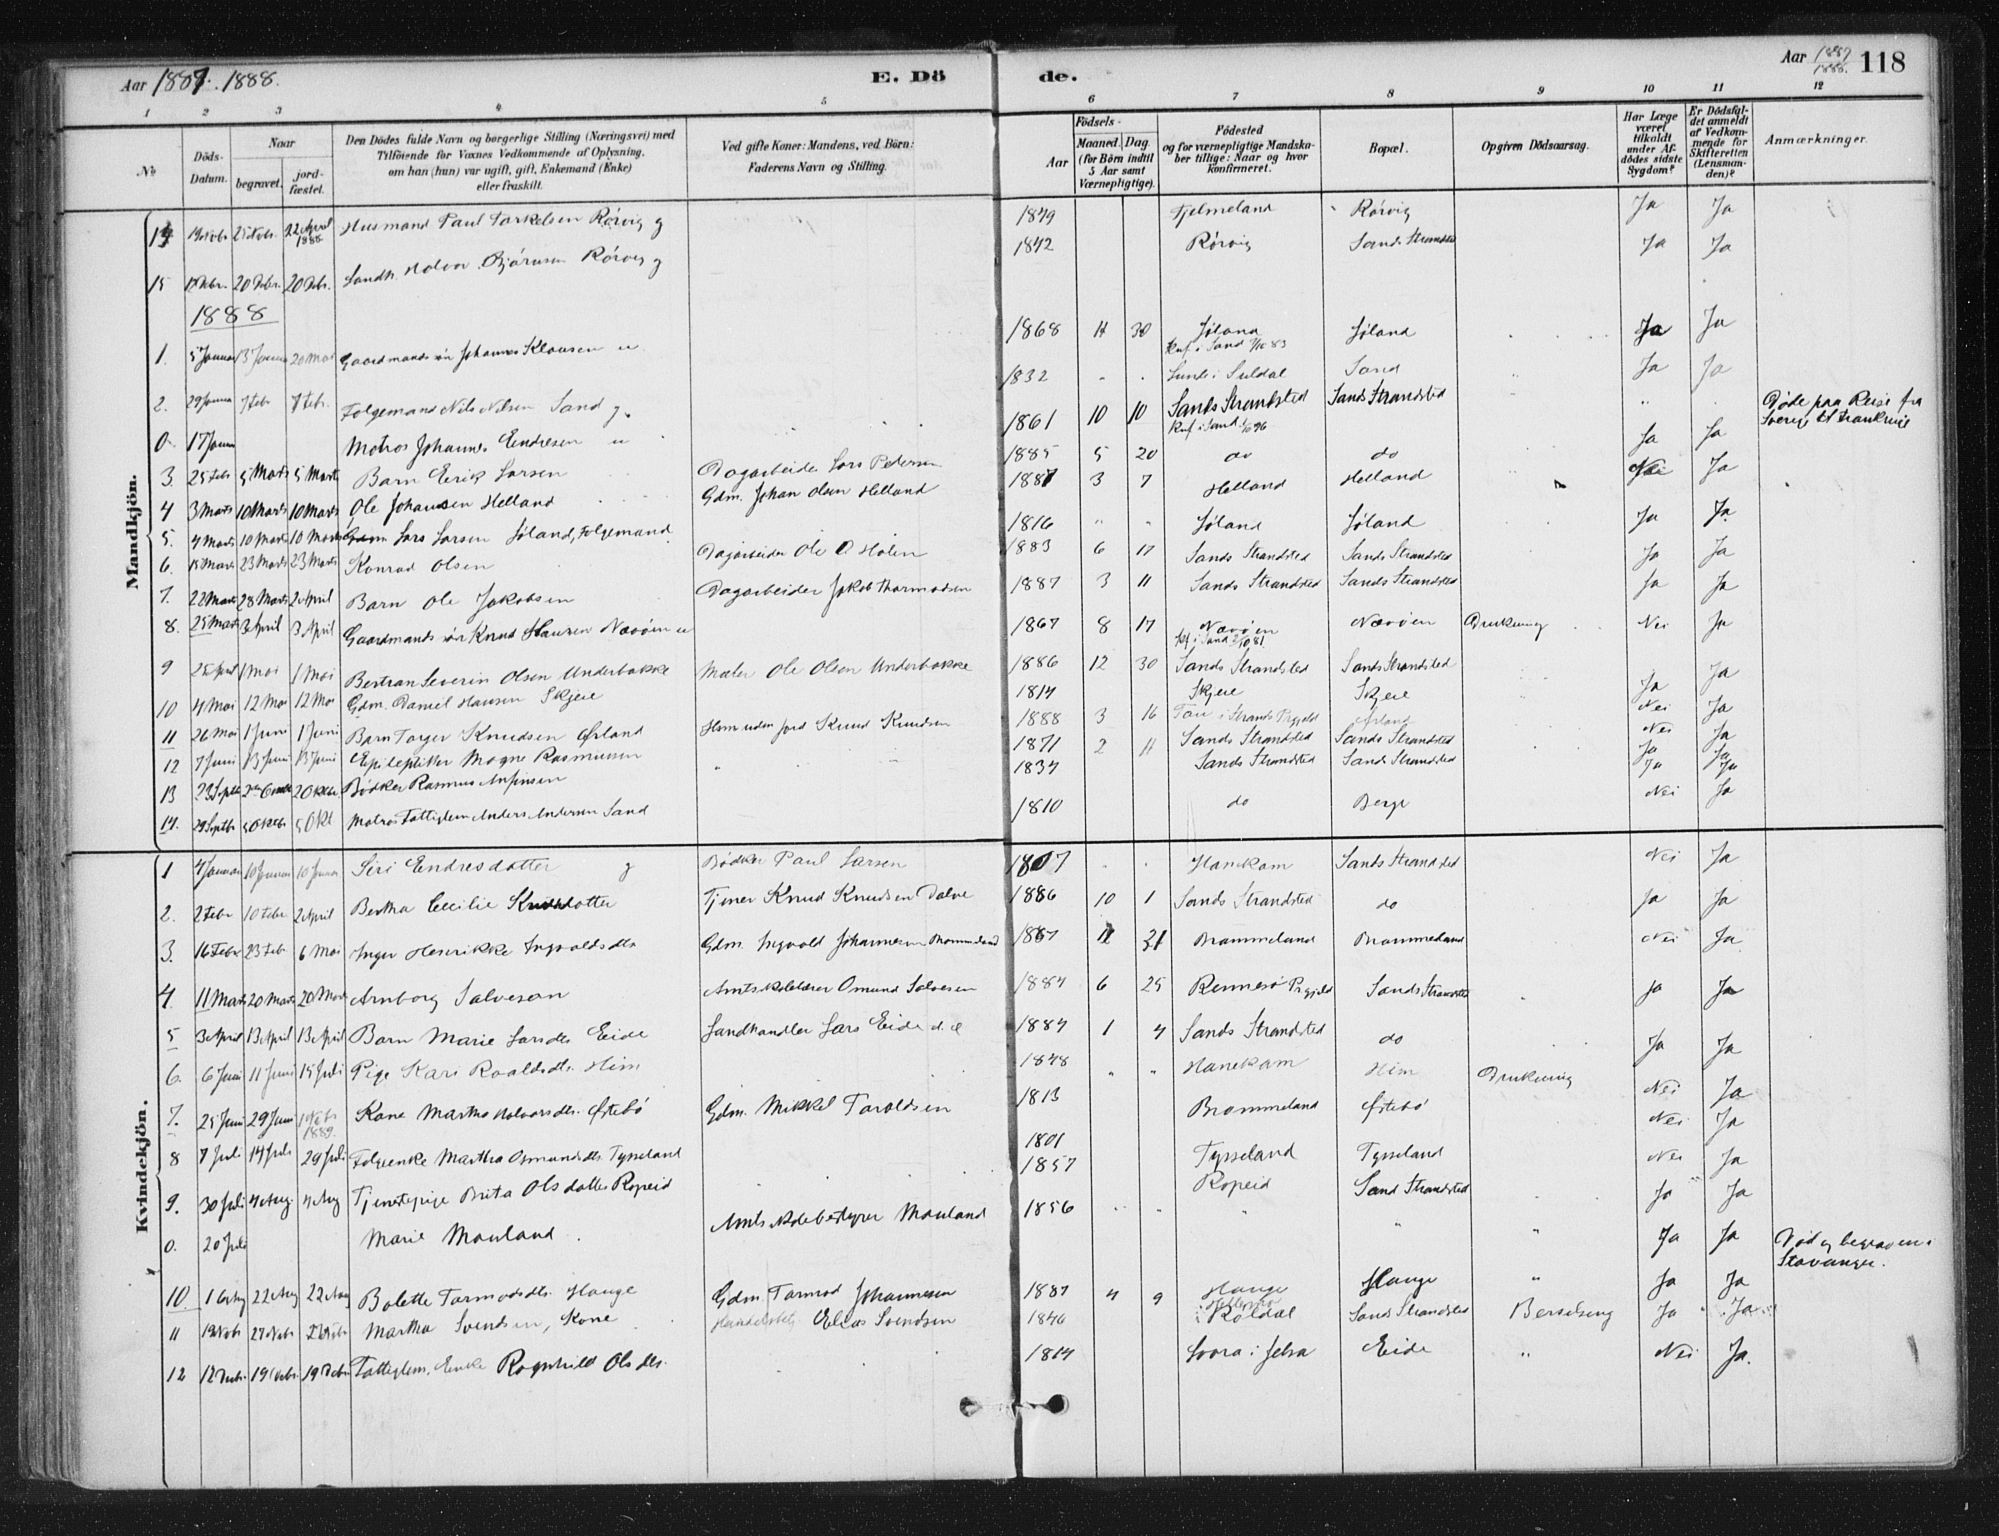 Aar 1887. 1888. E. Dö de. Aar 1887/1888. 118
1 2 3 4 5 6 7 8 9 10 11 12
No
Döds-Datum.
Naar
begravet.
jord-fæstet.
Den Dödes fulde Navn og borgerlige Stilling (Næringsvei) med Tilföiende for Voxnes Vedkommende af Oplysning, om han (hun) var ugift, gift, Enkemand (Enke) eller fraskilt.
Ved gifte Koner: Mandens, ved Börn: Faderens Navn og Stilling.
Födsels-
Aar
Maaned. Dag.
(for Börn indtil 5 Aar samt Værnepligtige).
Födested og for værnepligtige Mandskaber tillige: Naar og hvor konfirmeret.
Bopæl.
Opgiven Dödsaarsag.
Har Læge været tilkaldt under Afdödes sidste Sygdom?
Er Dödsfaldet anmeldt af Vedkommende for Skifteretten (Lensmanden)?
Anmærkninger.
Mandkjön.
14 22 April 1888 Husmand Paul Torkelsen Rörvig g 1849 Fjelmeland Rörvig Ja Ja
15 20 Febr. Halvor Bjørnsen Rörvig g 1842 Rörvig Sands Strandsted Ja Ja
1888
1. 5 Januar 13 Januar 20 Mai Gaardmandssön Johannes Klausen u 1868 11 30 Jøland Jøland Ja Ja
2. 29 Januar 7 Febr 7 Febr. Folgemand Nils Nilsen Sand g. 1832 Suldal Sand Ja Ja
0. 17 Januar Matros Johannes Endresen u 1861 10 10 Sands Strandsted Sands Strandsted Døde paa Reise fra Sverige til Frankrige
3 25 Febr 5 Marts 5 Marts Barn Erik Larsen Dagarbeider Lars Pedersen 1885 5 20 do do Ja Ja
4 3 Marts 10 Marts 10 Marts Ole Johansen Helland Gdm. Johan Olsen Helland 1887 3 7 Helland Helland Nei Ja
5. 4 Marts 10 Marts 10 Marts Lars Larsen Jøland, Folgemand 1816 " " Jøland Jøland Ja Ja
6. 15 Marts 23 Marts 23 Marts Konrad Olsen Dagarbeider Ole O Holen 1883 6 17 Sands Strandsted Sands Strandsted Ja Ja
7. 22 Marts 28 Marts 2 April Barn Ole Jakobsen Dagarbeider Jakob Thormodsen 1887 3 11 Sands Strandsted Sands Strandsted Ja Ja
8. 25 Marts 3 April 3 April Gaardmandssön Knud Hansen Nærøen u 1867 8 17 Nærøen Nærøen Drukning Nei Ja
9 25 April 1 Mai 1 Mai Bertran Severin Olsen Underbakke Maler Ole Olsen Underbakke 1886 12 30 Sands Strandsted Sands Strandsted Ja
10 4 Mai 12 Mai 12 Mai Gdm. Daniel Hansen Skjeie 1814 Skjeie Skjeie Ja
11 26 Mai 1 Juni 1 Juni Barn Torger Knudsen Ørland Husm uden Jord Knud Knudsen 1888 3 16 Tau i Strands Prgjeld Ørland Nei Ja
12 7 Juni 13 Juni 13 Juni Epileptiker Mogne Rasmussen 1871 2 11 Sands Strandsted Sands Strandsted Nei Ja
13 23 Septbr 2 Oktbr Bødker Rasmus Anfinsen 1834 Sands Strandsted Sands Strandsted Ja Ja
14. 29 Septbr 5 Oktbr 5 Okt Matros Fattiglem Anders Andersen Sand 1810 do Berge Nei Ja
Kvindekjön.
1 4 Januar 10 Januar 10 Januar Siri Endresdatter g Bødker Paul Larsen 1807 Hanekam Sands Strandsted Nei Ja
2. 2 Febr 10 Febr 2 April Bertha Cecilie Knudsdatter Tjener Knud Knudsen 1886 10 1 Sands Strandsted do Ja Ja
3. 16 Febr 23 Febr 6 Mai Inger Henrikke Ingvaldsdtr Gdm. Ingvald Johannesen Brommeland 1887 11 21 Brommeland Brommeland Nei Ja
4. 11 Marts 20 Marts 20 Marts Arnborg Salvesen Amtskolelærer Omund Salvesen 1884 6 25 Rennesö Prgjeld Sands Strandsted Ja Ja
5 3 April 13 April 13 April Barn Marie Larsdtr Eide Landhandler Lars Eide 1884 1 4 Sands Strandsted do Ja Ja
6. 6 Juni 11 Juni 15 Juli Pige Kari Roaldsdtr. Him 1848 " " Hanekam Him Drukning Nei Ja
7. 25 Juni 29 Juni 1889 Kone Martha Halvorsdtr. Østebö Gdm. Mikkel Taroldsen 1813 Brommeland Østebö Nei Ja
8 7 Juli 14 Juli 29 Juli Folgeenke Martha Osmundsdtr Tysseland 1801 Tysseland Tysseland Nei Ja
9. 30 Juli 4 Aug. 4 Aug Tjenestepige Brita Olsdatter Ropeid 1857 Ropeid Sand Strandsted Ja Ja
0. 20 Juli Marie Mauland Amtsskolebestyrer Mauland 1856 " " " " " Ja Ja Død og begraven i Stavanger.
10 16 Aug 22 Aug 22 Aug Bolette Tormodsdtr. Hauge Gdm. Tormod Johannesen 1887 4 9 Hauge Hauge " Ja Ja
11 Martha Svendsen, Kone Elias Svendsen 1846 i Röldal Sands Strandsted Barselseng Ja Ja
12 12 Decbr. 19 Decbr. 19 Decbr Fattiglem. Enke Ragnhild Olsdtr. 1814 i Jelsa Eide " Nei Ja.